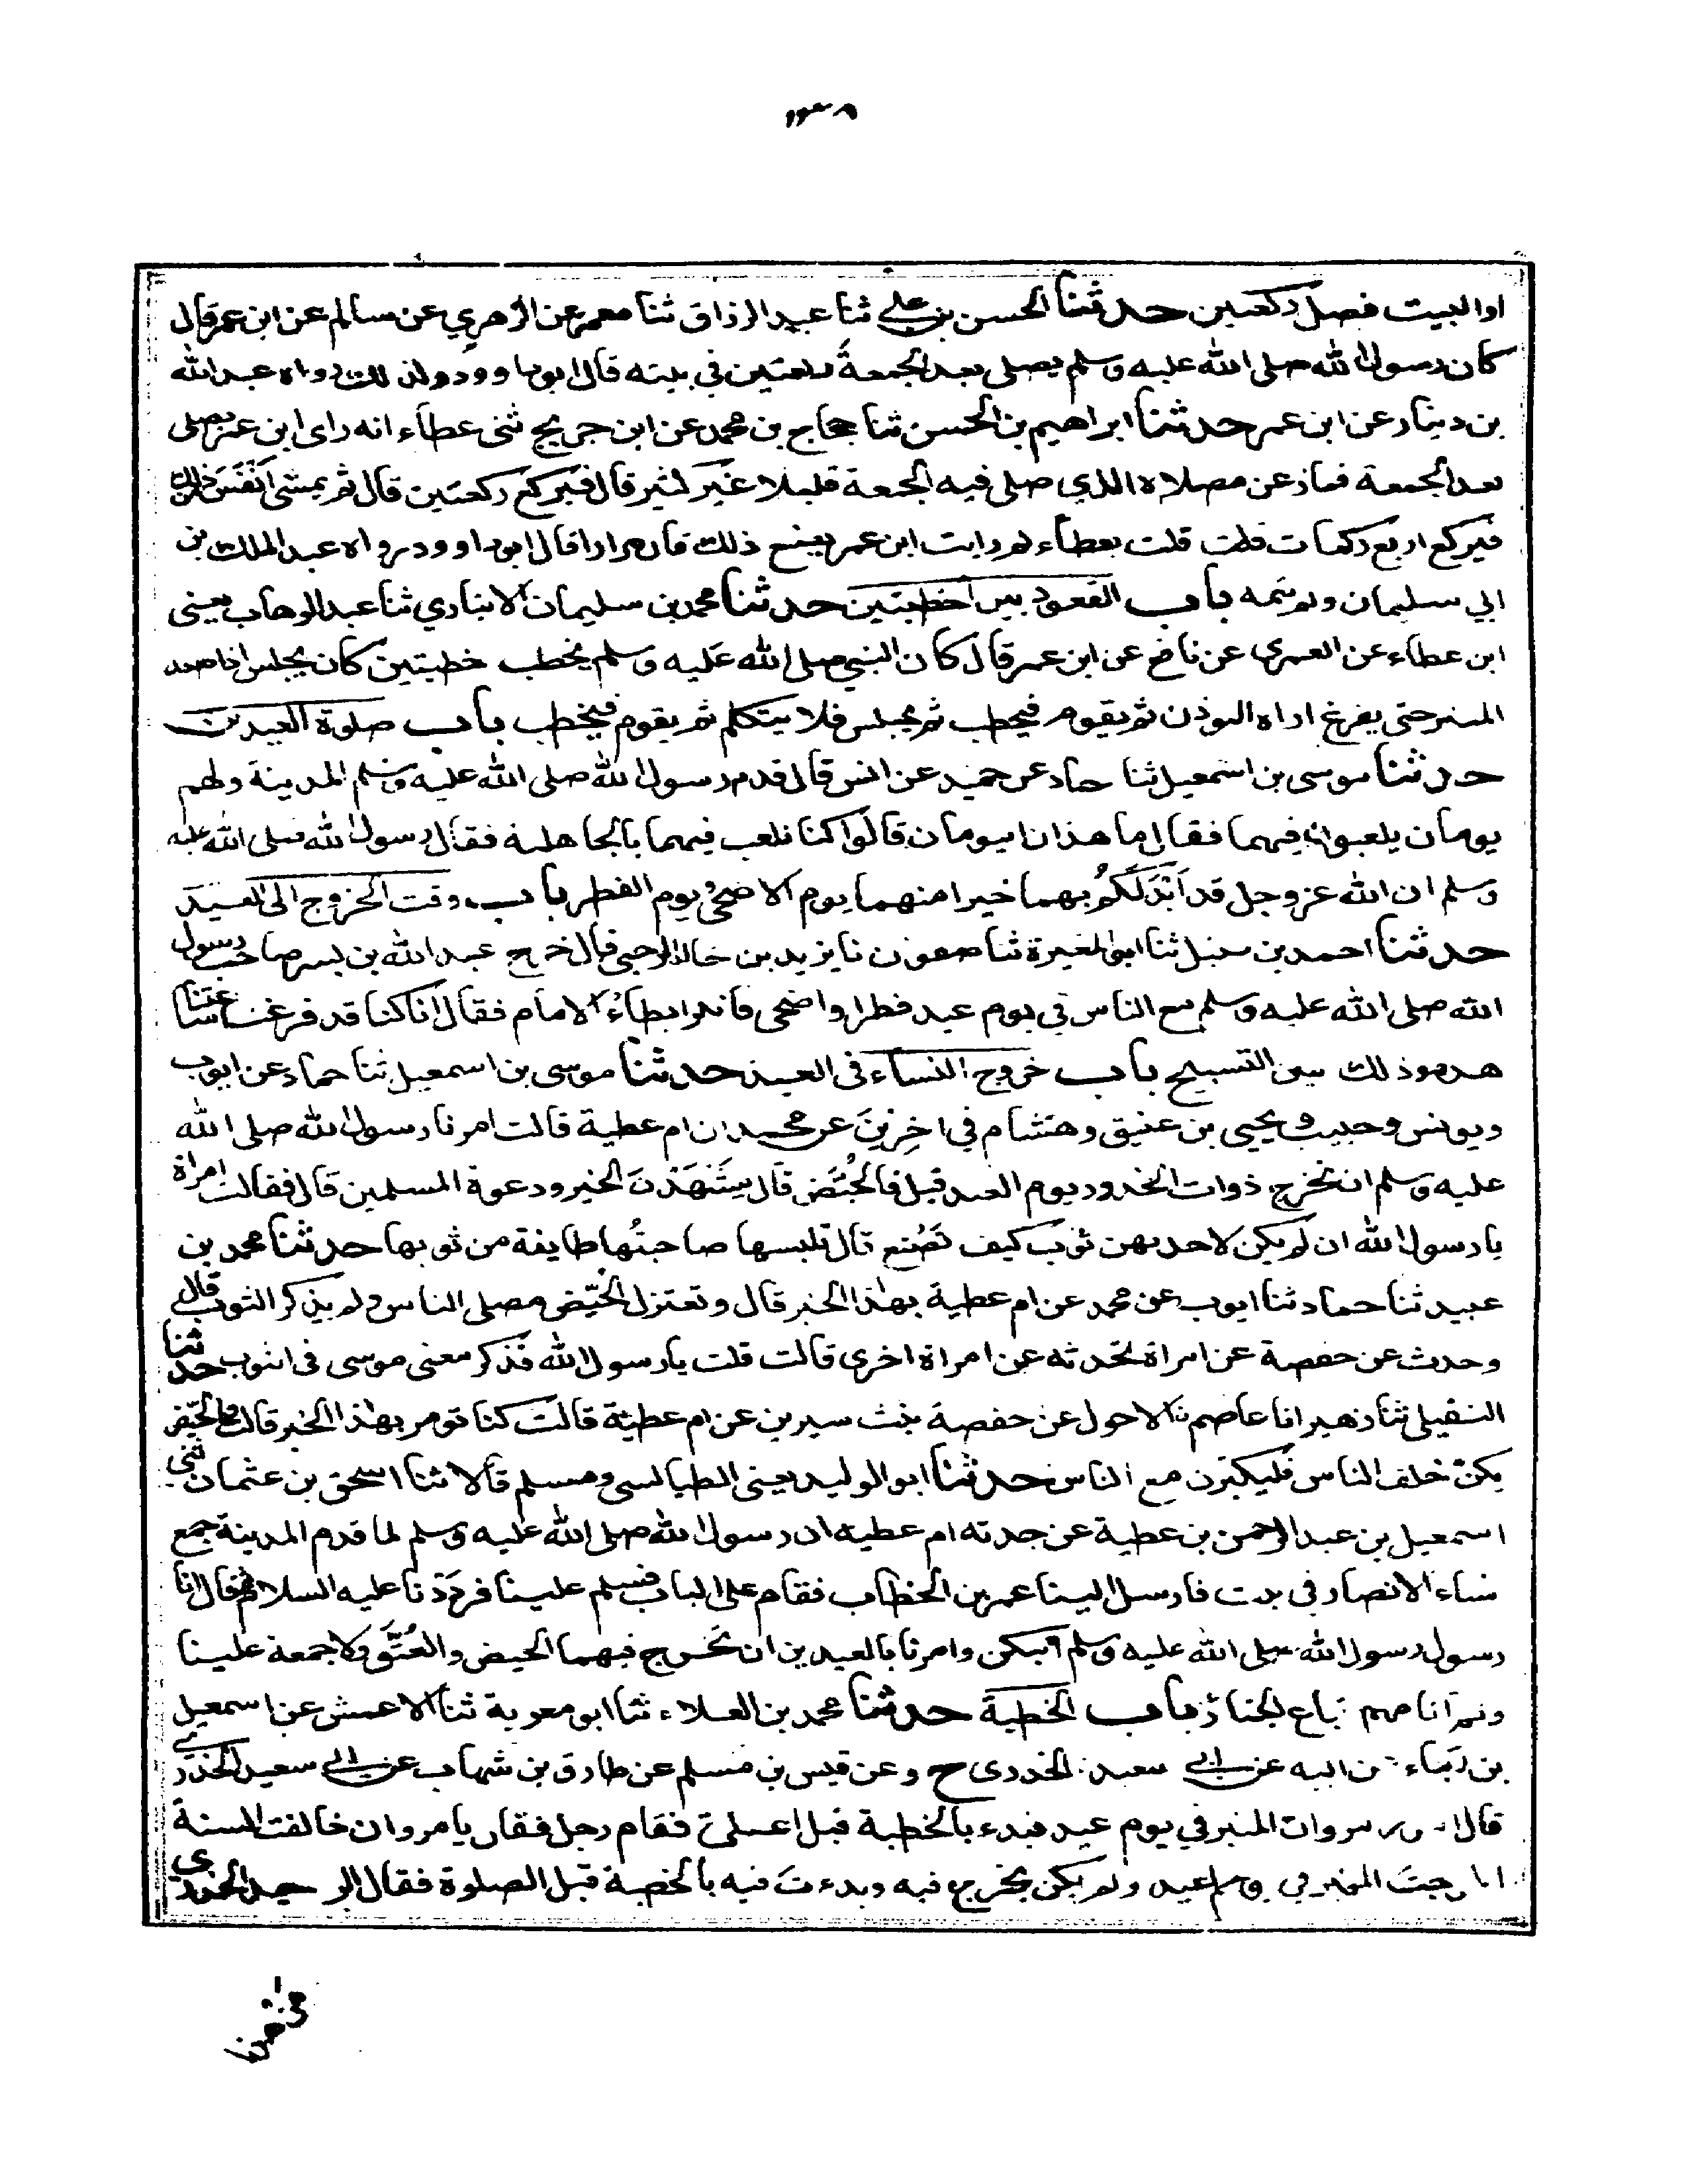 ١٣٨
او البيت فصل ركعتين حدثنا الحسن بن علي ثنا عبد الرزاق ثنا معمر عن الزهري عن سالم عن ابن عمر قال
كان رسول الله صلى الله عليه وسلم يصلي بعد الجمعة ركعتين في بيته قال ابو داوود وكذلك رواه عبد الله
بن دينار عن ابن عمر حدثنا ابراهيم بن الحسن ثنا حجاج بن محمد عن ابن جريج ثنى عطاء انه راى ابن عمر يصلى
بعد الجمعة فيماز عن مصلاه الذي صلى فيه الجمعة قليلا غير كثير قال فيركع ركعتين قال ثم يمشى انفس من ذلك
فيركع اربع ركعات قلت لعطاء كم رايت ابن عمر يصنع ذلك قال مرارا قال ابو داوود رواه عبد الملك بن
ابي سليمان ولم يتمه باب القعود بين الخطبتين حدثنا محمد بن سليمان الانباري ثنا عبد الوهاب يعنى
ابن عطاء عن العمري عن نافع عن ابن عمر قال كان النبي صلى الله عليه وسلم يخطب خطبتين كان يجلس اذا صعد
المنبر حتى يفرغ اراه الموذن ثم يقوم فيخطب ثم يجلس فلا يتكلم ثم يقوم فيخطب باب صلوة العيدين
حدثنا موسى بن اسمعيل ثنا حماد عن حميد عن انس قال قدم رسول الله صلى الله عليه وسلم المدينة ولهم
يومان يلعبون فيهما فقال ما هذان اليومان قالوا كنا نلعب فيهما بالجاهلية فقال رسول الله صلى الله عليه
وسلم ان الله عز وجل قد ابدلكم بهما خيرا منهما يوم الاضحى ويوم الفطر باب وقت الخروج الى العيد
حدثنا احمد بن حنبل ثنا ابو المغيرة ثنا صفون نا يزيد بن خالد الرحبي قال خرج عبد الله بن بسر صاحب رسول
الله صلى الله عليه وسلم مع الناس في يوم عيد فطر او اضحى فانكر ابطاء الامام فقال انا كنا قد فرغنا ساعتنا
هذه وذلك حين التسبيح باب خروج النساء في العيد حدثنا موسى بن اسمعيل ثنا حماد عن ايوب
ويونس وحبيب ويحيى بن عتيق وهشام في اخرين عن محمد ان ام عطية قالت امرنا رسول الله صلى الله
عليه وسلم ان نخرج ذوات الخدور يوم العيد قيل فالحيض قال يشهدن الخير ودعوة المسلمين قال فقالت امراة
يا رسول الله ان لم يكن لاحديهن ثوب كيف تصنع قال تلبسها صاحبتها طايفة من ثوبها حدثنا محمد بن
عبيد ثنا حماد ثنا ايوب عن محمد عن ام عطية بهذا الخبر قال وتعتزل الحيض مصلى الناس ولم يذكر الثوب قال
وحدث عن حفصة عن امراة تحدثه عن امراة اخرى قالت قلت يا رسول الله فذكر معنى موسى في الثوب حدثنا
النفيلي ثنا زهير انا عاصم الاحول عن حفصة بنت سيرين عن ام عطية قالت كنا نومر بهذا الخبر قالت والحيض
يكن خلف الناس فليكبرن مع الناس حدثنا ابو الوليد يعنى الطيالسى ومسلم قالا ثنا اسحق بن عثمان ثنى
اسمعيل بن عبد الرحمن بن عطية عن جدته ام عطية ان رسول الله صلى الله عليه وسلم لما قدم المدينة جمع
نساء الانصار في بيت فارسل الينا عمر بن الخطاب فقام على الباب فسلم علينا فرددنا عليه السلام ثم قال انا
رسول رسول الله صلى الله عليه وسلم اليكن وامرنا بالعيدين ان نخرج فيهما الحيض والعتق ولا جمعة علينا
ونهانا عن اتباع الجنائز باب الخطبة حدثنا محمد بن العلاء ثنا ابو معوية ثنا الاعمش عن اسمعيل
بن رجاء عن ابيه عن ابي سعيد الخدرى ح وعن قيس بن مسلم عن طارق بن شهاب عن ابي سعيد الخدري
قال اخرج مروان المنبر في يوم عيد فبدء بالخطبة قبل الصلوة فقام رجل فقال يا مروان خالفت السنة
اخرجت المنبر في يوم عيد ولم يكن يخرج فيه وبدءت فيه بالخطبة قبل الصلوة فقال ابو سعيد الخدري